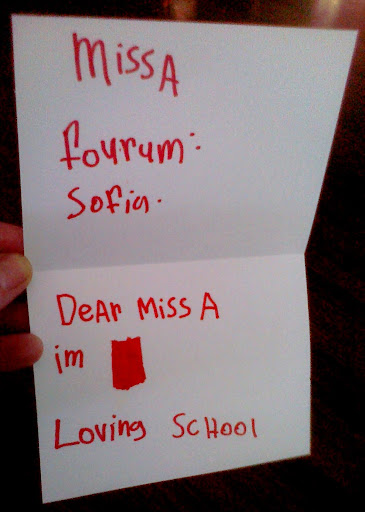 Miss A
fourum:
Sofia.
Dear Miss A
im
Loving School